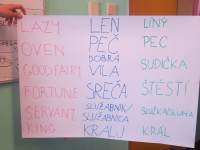 LAZY LEN LÍNÝ
OVEN PEČ PEC
GOOD FAIRY DOBRA VILA SUDIČKA
FORTUNE SREČA ŠTĚSTÍ
SERVANT SLUŽABNIK/ SLUŽABNICA SLUŽKA/SLUHA
KING KRALJ KRÁL